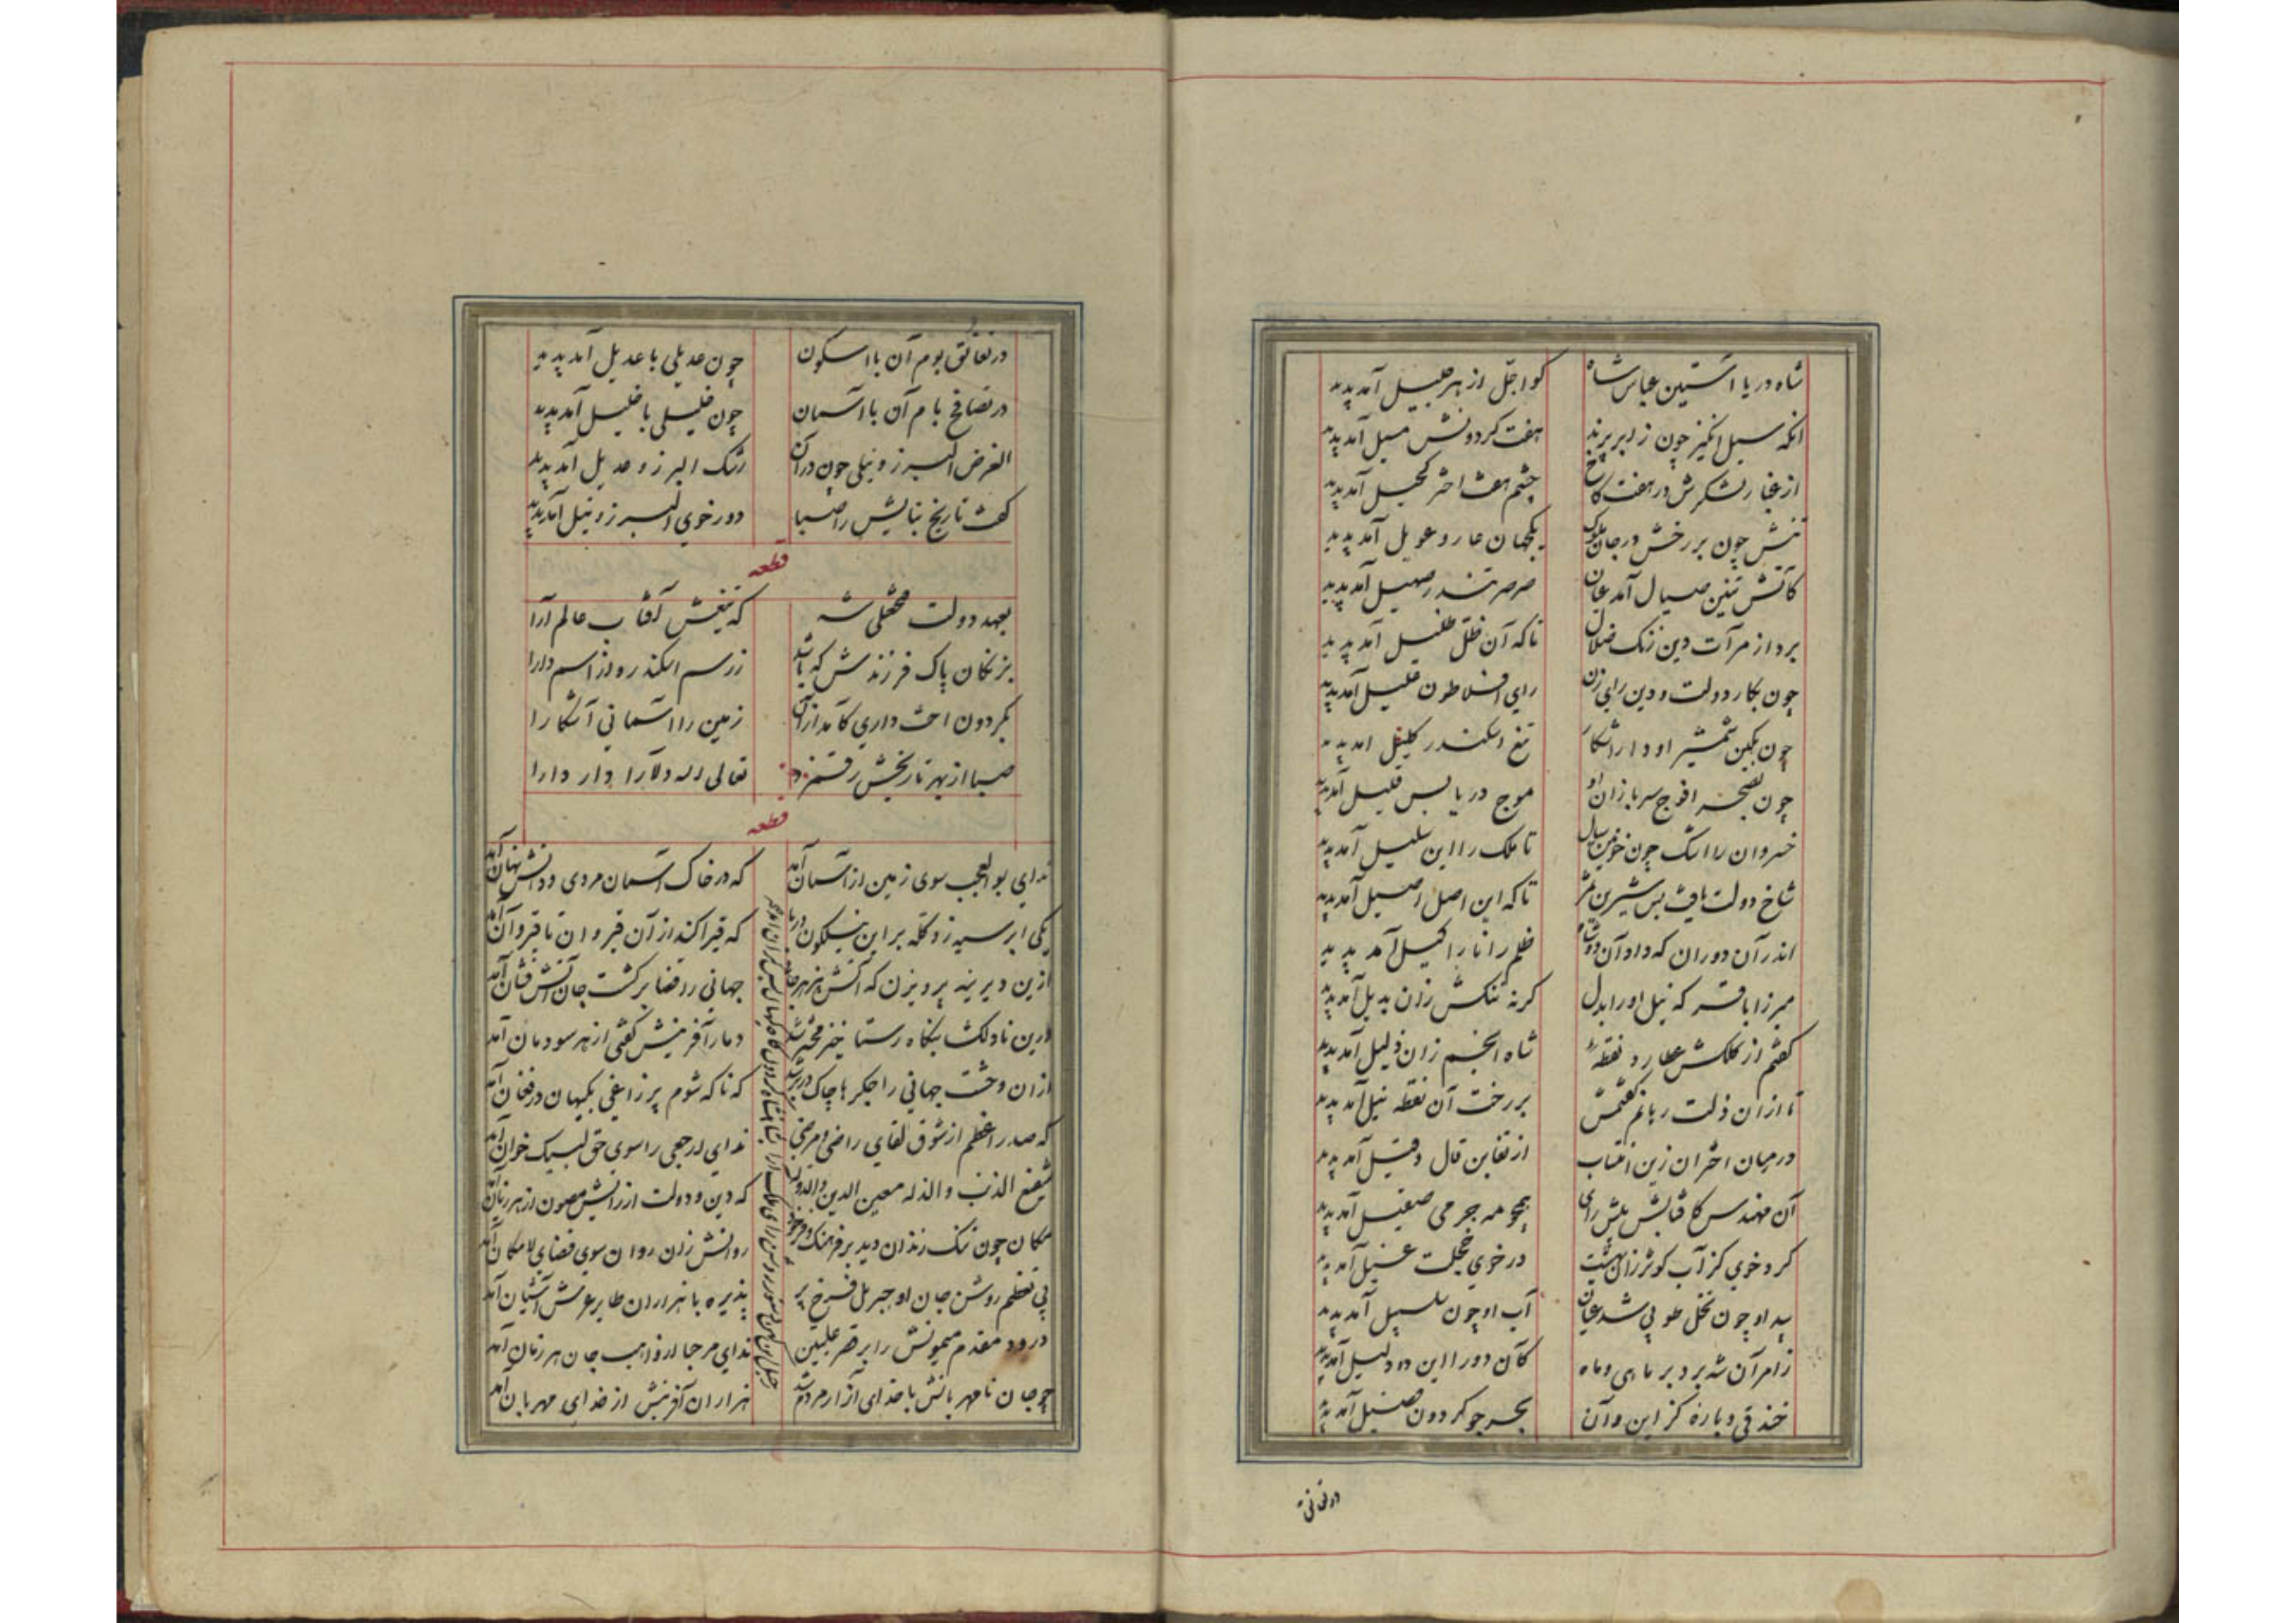 شاه دریا آستین عباس شاه کو اجل از هر جلیل آمد پدید
انکه سیل انگیز چون زابر پرند هفت کردونش مسیل آمد پدید
از غبار لشکرش در هفت کاخ چشم هفت اختر کحیل آمد پدید
تنش چون بر رخش در جان ملوک یکجهان عار و عویل آمد پدید
کاتش تنین صیال آمد عیان صرصر تندر صهیل آمد پدید
برد از مرآت دین زنک ضلال تا که آن ظل ظلیل آمد پدید
چون بکار دولت و دین رای زن رای افلاطون علیل آمد پدید
چون بکین شمشیر او دارا شکار تیغ اسکندر کلیل آمد پدید
چون بصحرا افوج سربازان او موج دریا بس قلیل آمد پدید
خسروان را اشک چون خونین سیال تا ملک را این سلیل آمد پدید
شاخ دولت یافت بس شیرین ثمر تا که این اصل اصیل آمد پدید
اندر آن دوران که داد آن دو شاه ظلم را نار اکیل آمد پدید
میرزا باقر که نیل او را بدل کر نه کنکش زان بدیل آمد پدید
کفتم از کلکش عطارد نقطهٔ شاه انجم زان ذلیل آمد پدید
تا از آن ذلت رهانم کفتمش بر رخت آن نقطه نیل آمد پدید
در میان اختران زین انتساب از تغابن قال و قیل آمد پدید
آن مهندس کافتابش پیش رای همچو مه جرمی صقیل آمد پدید
کرد خوی کز آب کوثر زان بهشت در خوی خجلت غسیل آمد پدید
بید او چون نخل طوبی شد عیان آب او چون سلسبیل آمد پدید
ز امر آن شه برد بر ماهی و ماه کآن دو را این دو دلیل آمد پدید
خندقی و باره کز این و آن بحر جو کردون ضئیل آمد پدید
در تعانق
در تعانق بوم آن با اسکون چون عدیلی با عدیل آمد پدید
در تصافح بام آن با آسمان چون خلیلی با خلیل آمد پدید
الغرض البرز و نیلی چون در آن رشک البرز و عدیل آمد پدید
کفت تاریخ بنایش را صبا دور خوی البرز و نیل آمد پدید
قطعه
بعهد دولت فتحعلی شه که تیغش آفتاب عالم آرا
بزنکان پاک فرزندش که باشد ز رسم اسکندر و از اسم دارا
بکردون اخت داری کامد از آن زمین را آسمانی آشکارا
صبا از بهر تاریخش رقم زد تعالی الله دلآرا دار دارا
قطعه
ندای بوالعجب سوی زمین از آسمان آمد که در خاک آسمان مردی و دانش نهان آمد
یکی ابر سیه زد کله بر این نیلکون دریا که قیر اکند از آن قیروان تا قیروان آمد
ازین دیرینه پرویزن که آتش بیز هر جانب جهانی را قضا بر کشت جان آتش فشان آمد
درین نادلکشا بنکاه رستاخیز محشر شد دمار آفرینش کفتی از هر سو دمان آمد
از آن وحشت جهانی را جکرها چاک در بر شد که ناکه شوم پر زاغی بکیهان در فغان آمد
که صدر اعظم از شوق لقای راضی و مرضی ندای ارجعی را سوی حق لبیک خوان آمد
شفیع الذنب و الذله معین الدین و الدوله که دین و دولت از رایش مصون از هر زیان آمد
مکان چون تنک زندان دید بر فرهنک و فر خود روانش زان روان سوی فضای لامکان آمد
پی تعظیم روشن جان او جبریل فرخ پر پذیره با هزاران طایر عرش آشیان آمد
درود مقدم میمونش را بر قصر علیین ندای مرحبا از واهب جان هر زمان آمد
چو جان نامهربانش با خدای آزار مردم شد هزاران آفرینش از خدای مهربان آمد